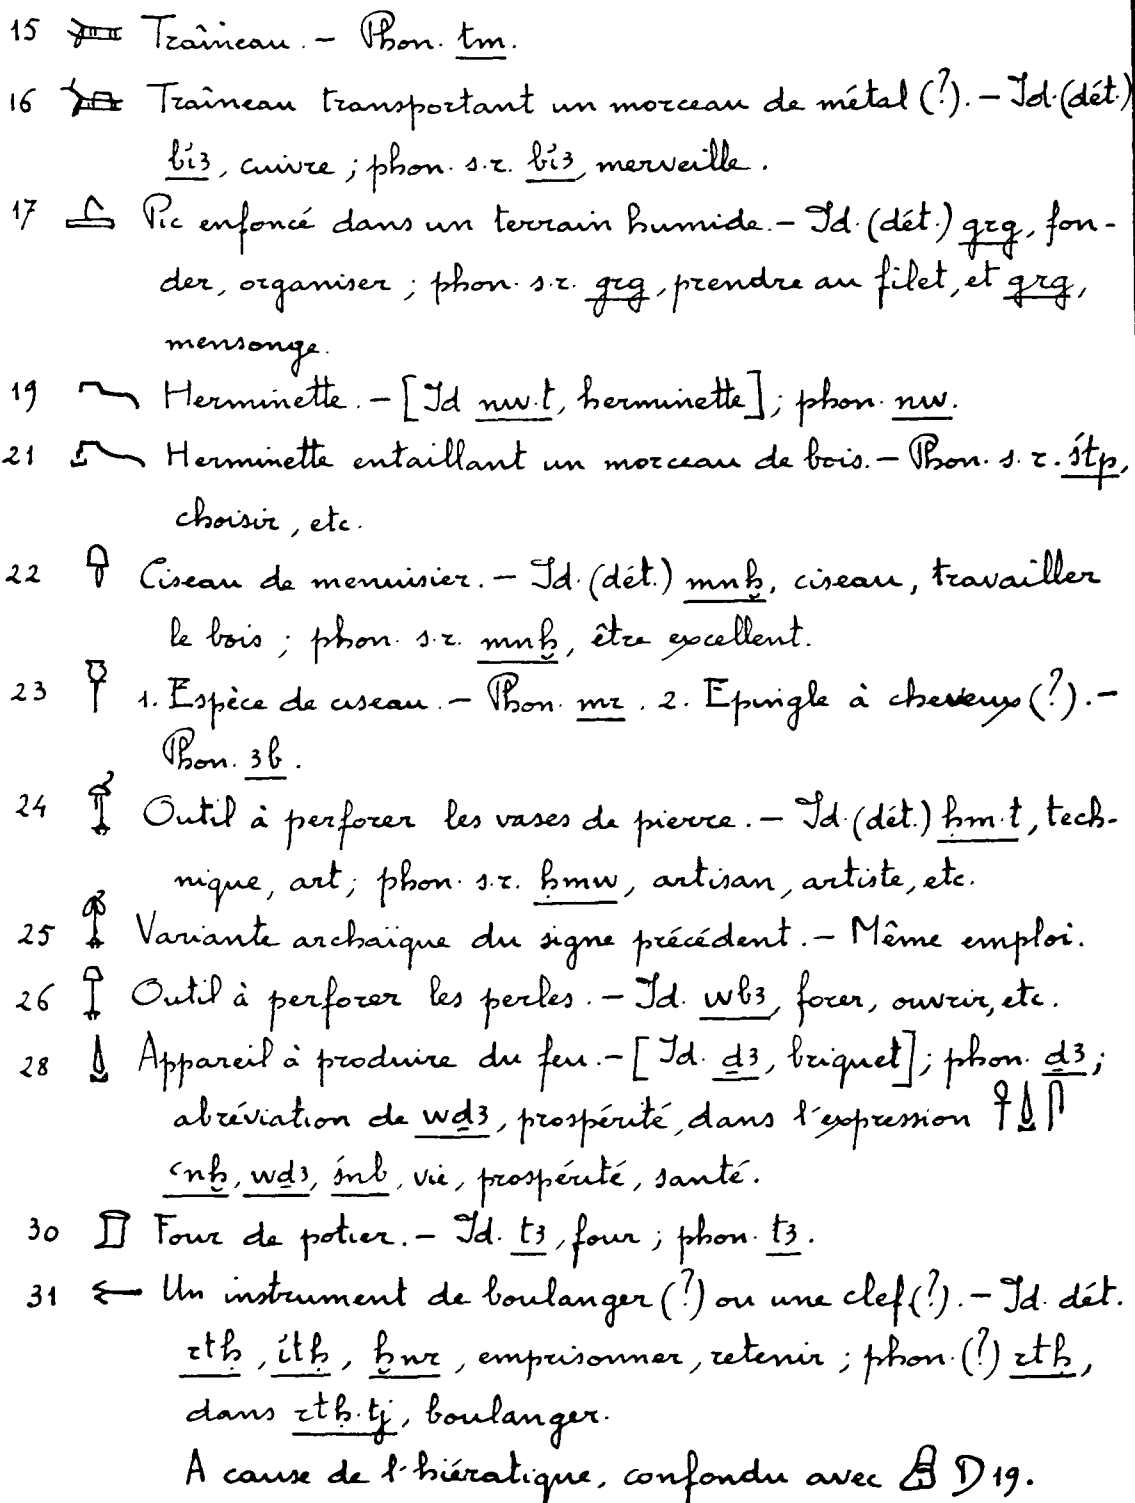 15 𓍃 Traîneau. – Phon. tm.
16 𓍄 Traîneau transportant un morceau de métal (?). – Id. (dét.)
bỉꜣ, cuivre ; phon. s.r. bỉꜣ, merveille.
17 𓍅 Pic enfoncé dans un terrain humide. – Id. (dét.) grg, fon-
der, organiser ; phon. s.r. grg, prendre au filet, et grg,
mensonge.
19 𓍇 Herminette. – [Id nw.t, herminette] ; phon. nw.
21 𓍉 Herminette entaillant un morceau de bois. – Phon. s.r. śtp,
choisir, etc.
22 𓍊 Ciseau de menuisier. – Id. (dét.) mnḫ, ciseau, travailler
le bois ; phon. s.r. mnḫ, être excellent.
23 𓍋 1. Espèce de ciseau. – Phon. mr. 2. Epingle à cheveux (?). –
Phon. ꜣb.
24 𓍍 Outil à perforer les vases de pierre. – Id. (dét.) ḥm.t, tech-
nique, art ; phon. s.r. ḥmw, artisan, artiste, etc.
25 𓍎 Variante archaïque du signe précédent. – Même emploi.
26 𓍏 Outil à perforer les perles. – Id. wbꜣ, forer, ouvrir, etc.
28 𓍑 Appareil à produire du feu. – [Id. ḏꜣ, briquet] ; phon. ḏꜣ ;
abréviation de wḏꜣ, prospérité, dans l'expression 𓋹𓍑𓋴
ꜥnḫ, wḏꜣ, śnb, vie, prospérité, santé.
30 𓍓 Four de potier. – Id. tꜣ, four ; phon. tꜣ.
31 𓍕 Un instrument de boulanger (?) ou une clef (?). – Id. dét.
rtḥ, ỉtḥ, ḫnr, emprisonner, retenir ; phon. (?) rtḥ,
dans rtḥ.tj, boulanger.
A cause de l'hiératique, confondu avec 𓂉 D 19.